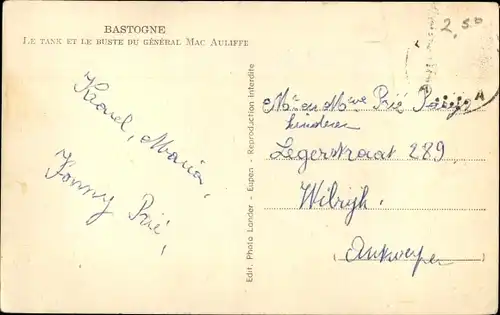 BASTOGNE
LE TANK ET LE BUSTE DU GÉNÉRAL MAC AULIFFE
2.50
A
Karel, Maria,
Fonny Prié,
Edit. Photo Lander - Eupen - Reproduction interdite
Mr en Mme Prié
kinderen
Legerstraat 289
Wilrijk.
Antwerpen